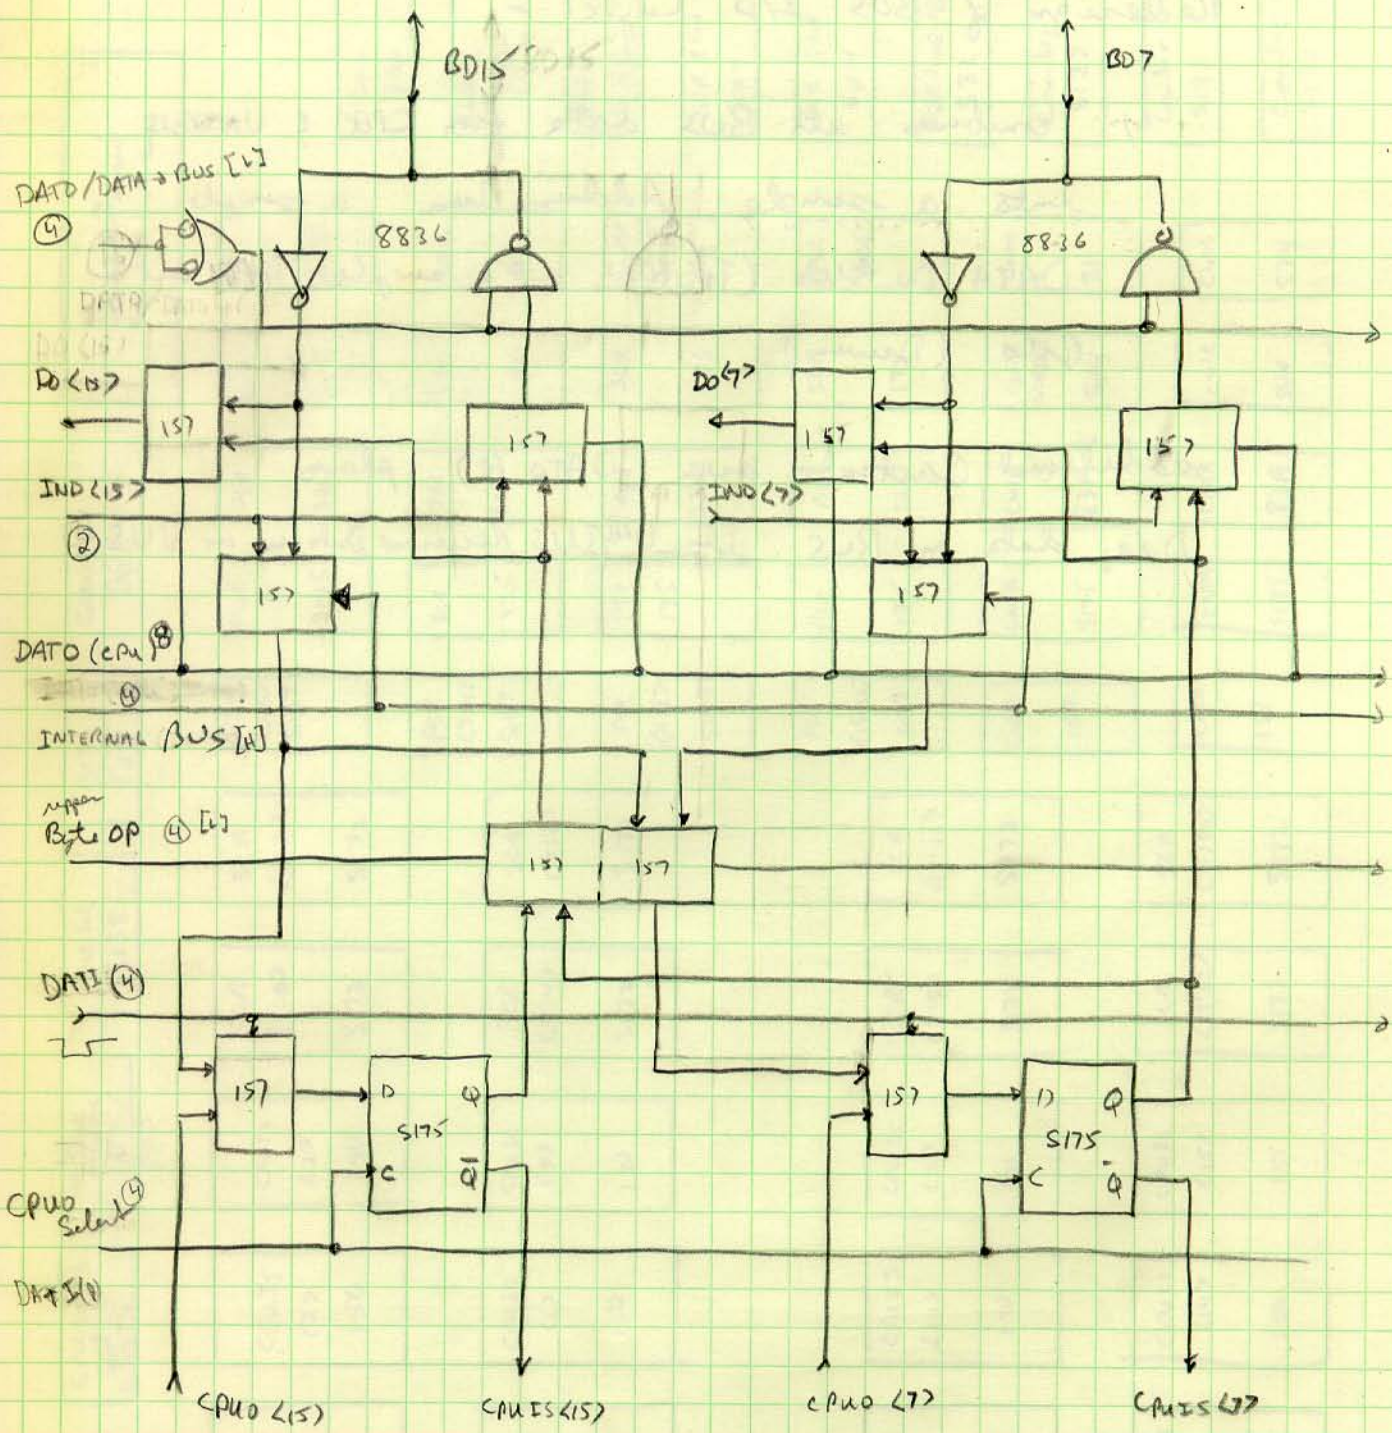 BD15
BD7
DATO/DATA→BUS [L]
④
8836
8836
DO<15>
157
157
DO<7>
157
157
IND<15>
IND<7>
②
157
157
DATO (CPU) ⑧
④
INTERNAL BUS [H]
upper
Byte OP ④ [L]
157
157
DATI ④
157
D
Q
S175
C
Q̅
157
D
Q
S175
C
Q̅
CPUO ④
Select
CPUO <15>
CPUIS<15>
CPUO <7>
CPUIS<7>